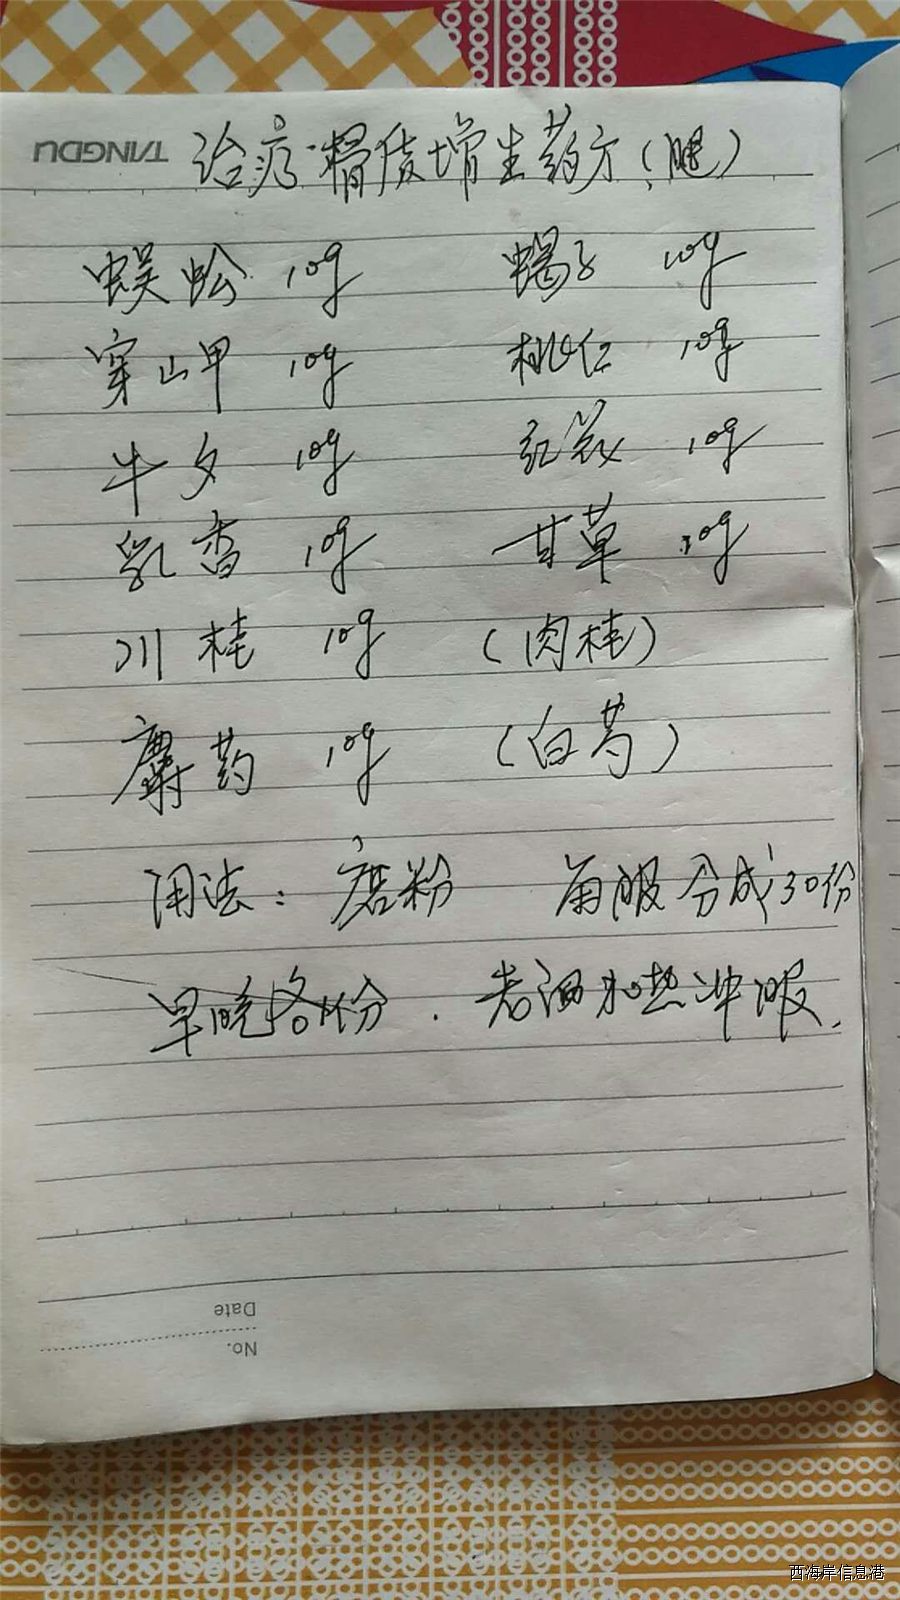 TANGDU
治疗骨质增生药方(腿)
蜈蚣 10g 蝎子 10g
穿山甲 10g 桃仁 10g
牛夕 10g 红花 10g
乳香 10g 甘草 10g
川桂 10g (肉桂)
麝药 10g (白芍)
用法: 磨粉 每服分成30份
早晚各1份. 老酒加热冲服.
Date
No.
西海岸信息港